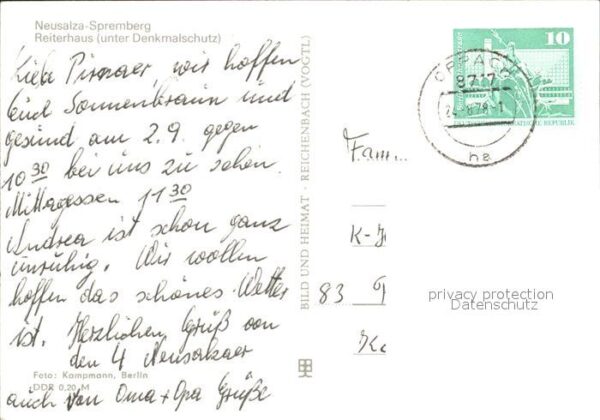 Neusalza-Spremberg
Reiterhaus (unter Denkmalschutz)
Liebe Pirnaer, wir hoffen
Euch Sonnenbraun und
gesund am 2.9. gegen
10 30 bei uns zu sehen.
Mittagessen 11 30
Andrea ist schon ganz
unruhig. Wir wollen
hoffen das schönes Wetter
ist. Herzlichen Grüß von
den 4 Neusalzaer
auch von Oma + Opa Grüße
Foto: Kampmann, Berlin
DDR 0,20 M
BILD UND HEIMAT · REICHENBACH (VOGTL)
10
OPPACH
8717
DEMOKRATISCHE REPUBLIK
Fam...
K-
83 P
privacy protection
Datenschutz